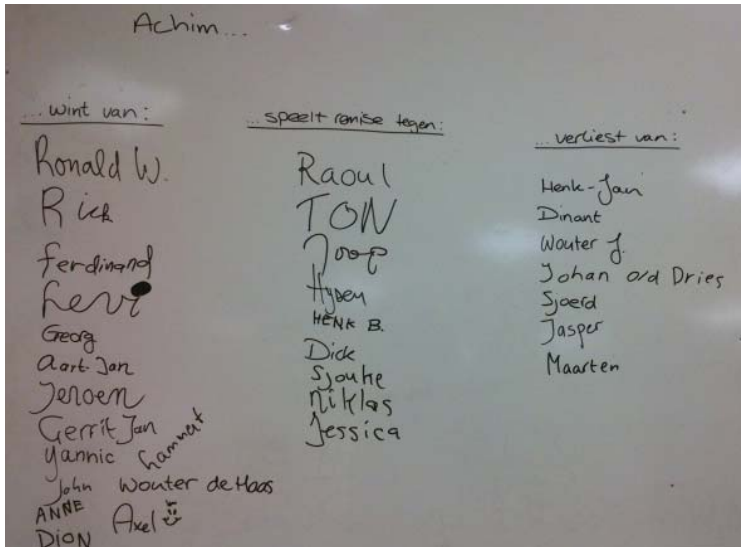 Achim...
...wint van:
Ronald W.
Rick
ferdinand
Levi
Georg
Aart-Jan
Jeroen
Gerrit Jan
Yannic Lammert
John Wouter de Haas
ANNE
Axel
DION
...speelt remise tegen:
Raoul
TON
Joop
HENK B.
Dick
Sjouke
Niklas
Jessica
...verliest van:
Henk-Jan
Dinant
Wouter J.
Johan o/d Dries
Sjoerd
Jasper
Maarten